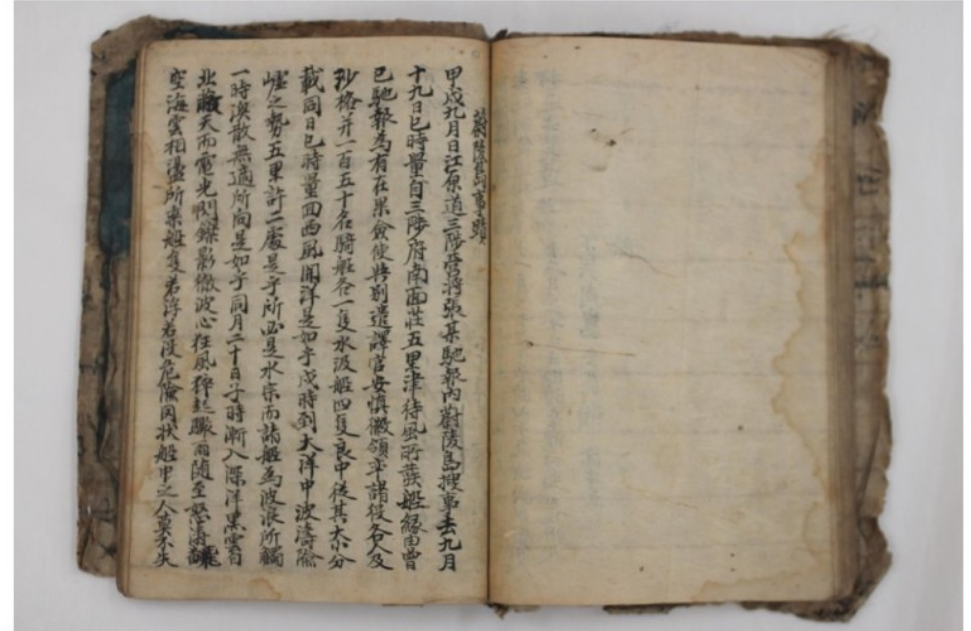 蔚陵島事蹟
甲戌九月日江原道三陟營將張某馳報內蔚陵島搜事去九月
十九日巳時量自三陟府南面莊五里津待風所發船緣由曾
已馳報為有在果僉使與別遣譯官安慎徽領來諸役各人及
沙格并一百五十名騎船各一隻汲水船四隻良中從其大小分
載同日巳時量回西風開洋是如乎戌時到大洋中波濤險
巇之勢五里許二處是乎所必是水宗而諸船為波浪所觸
一時渙散無適所向是如乎同月二十日子時漸入深洋黑雲自
北蔽天而電光閃鑠影徹波心狂風猝起驟雨隨至怒濤翻
空海雲相盪所乘船隻若浮若沒危險罔狀船中之人莫不失